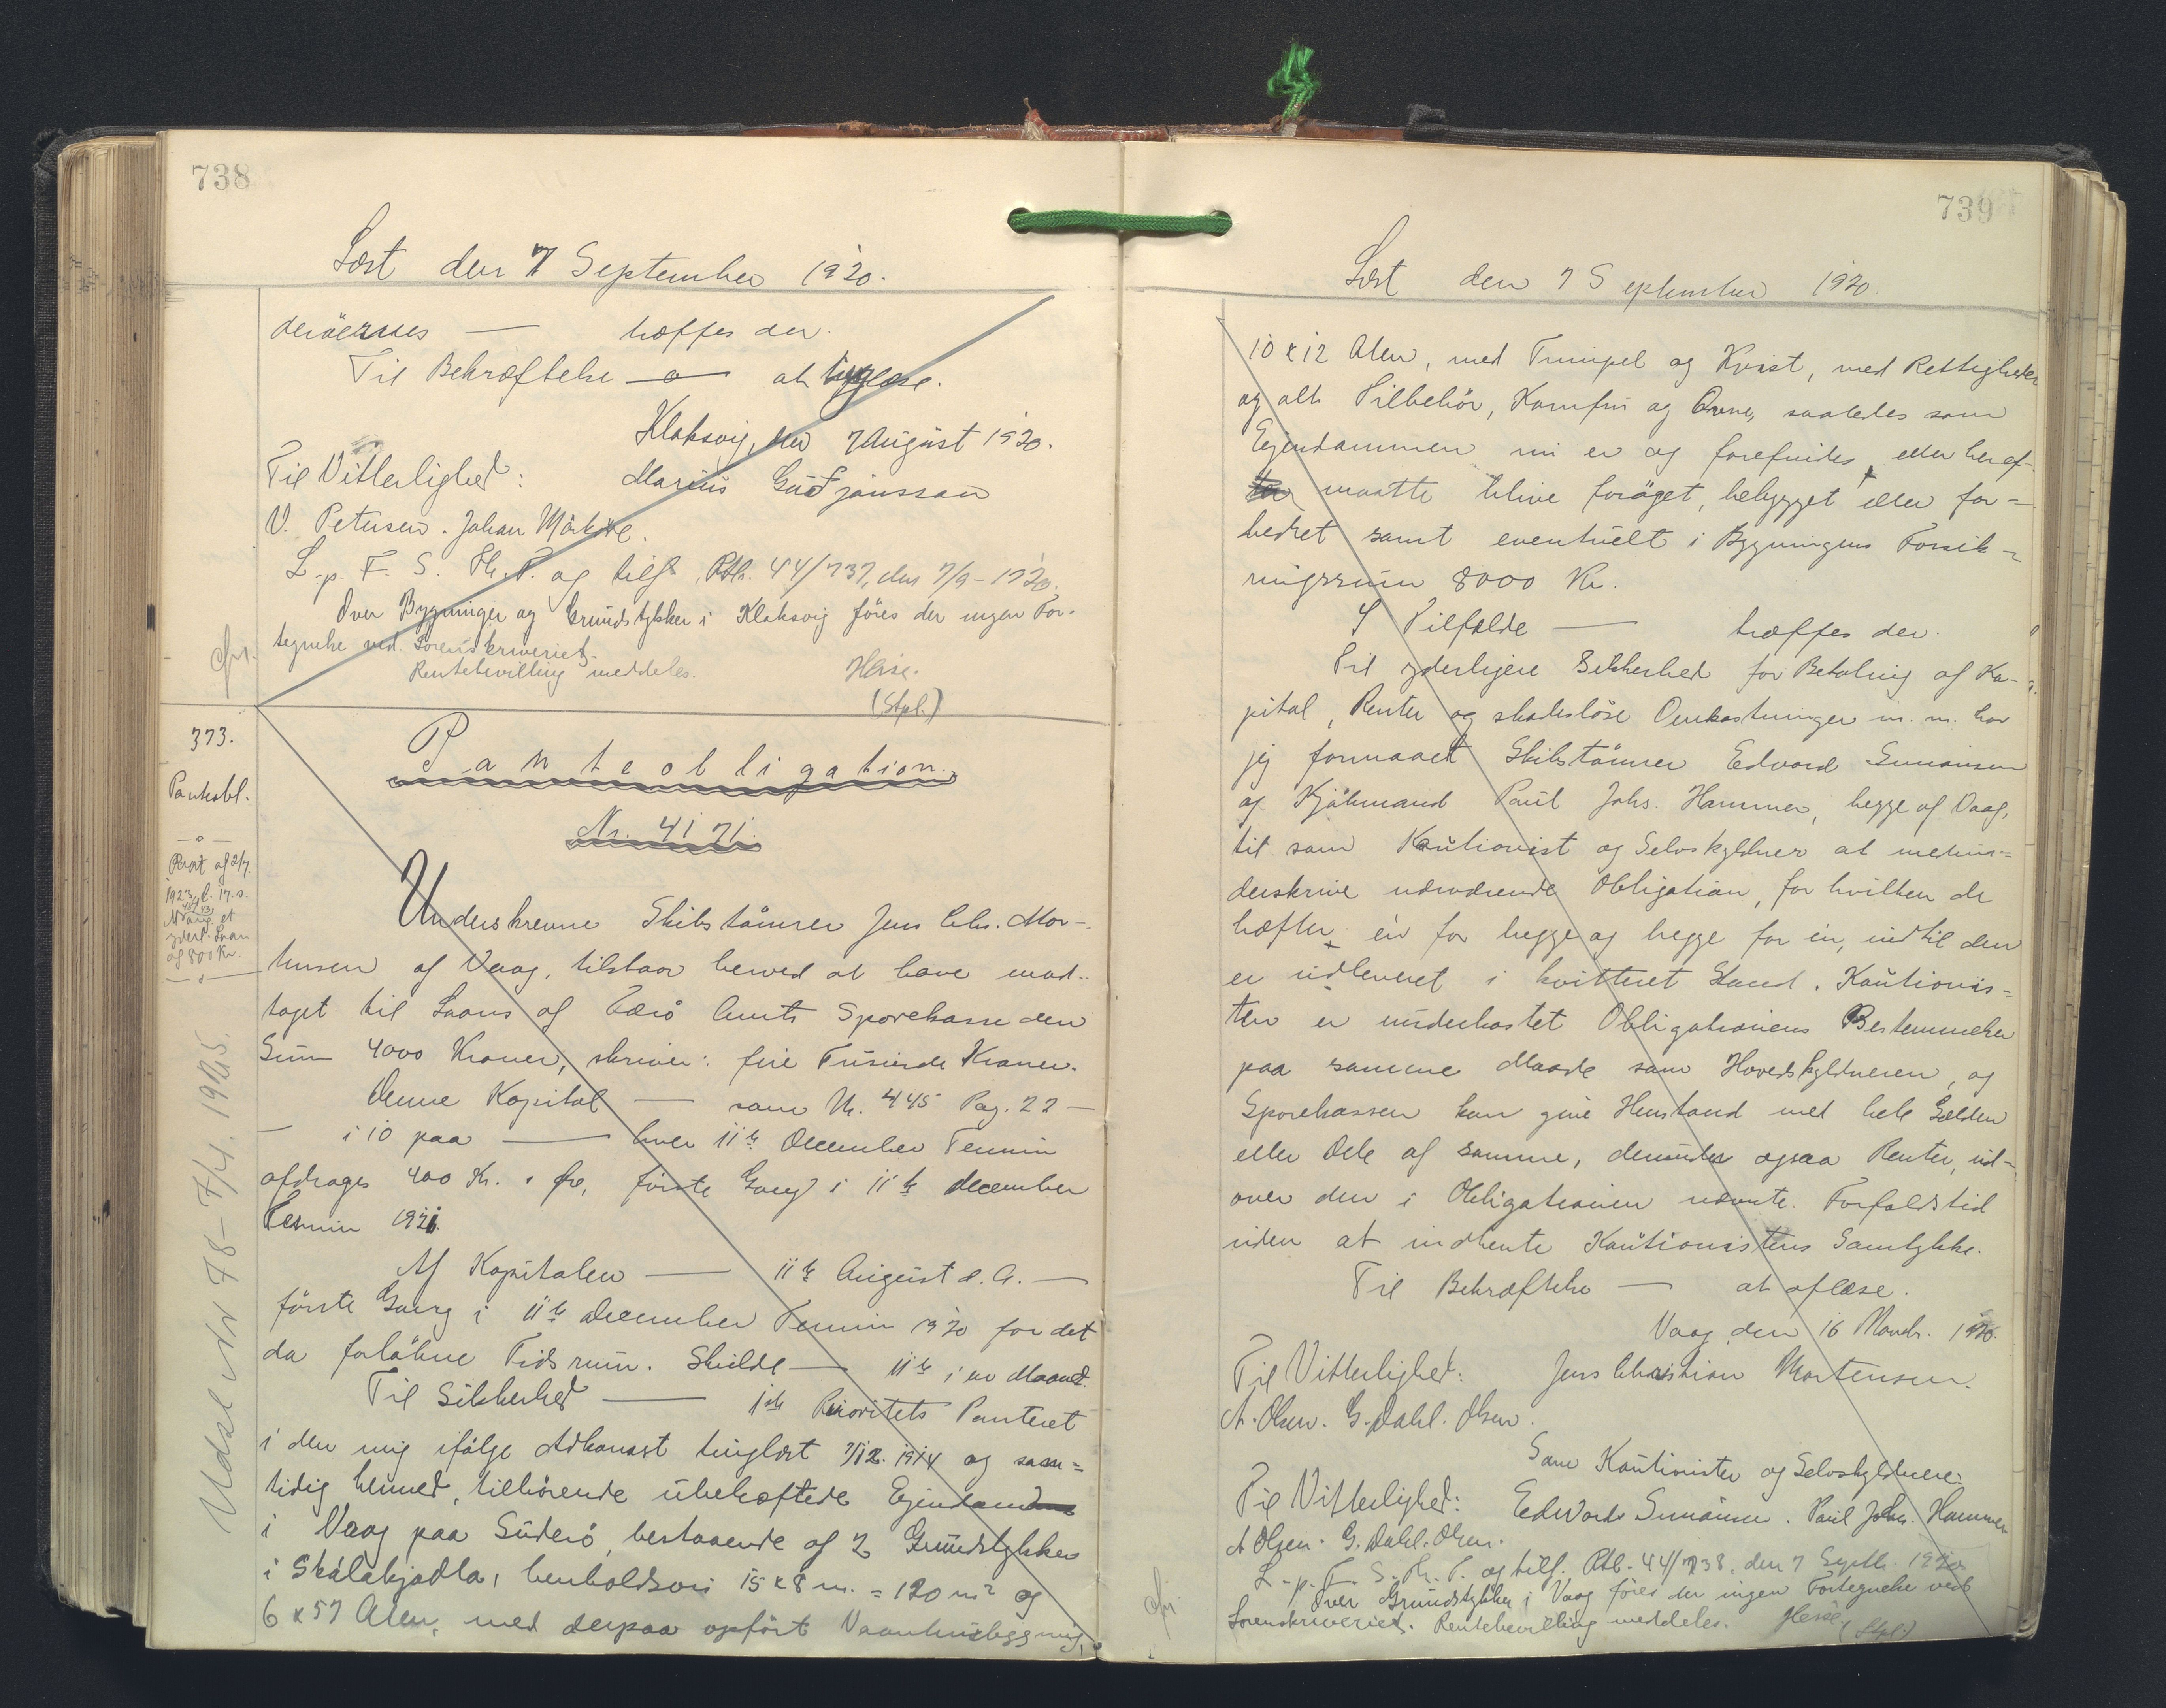 738
Læst den 7 September 1920.
deröernes — træffes der.
Til Bekræftelse — o — at tinglæse.
Klaksvig, den 7 August 1920.
Til Vitterlighed: Marius Gudjonsson
V. Petersen. Johan Mörköre.
L. p. F. S. Th. P. og tilf. Ptb. 44/737, den 7/9-1920.
Over Bygninger og Grundstykker i Klaksvig föres der ingen For-
tegnelse ved Sorenskriveriet.
Rentebevilling meddeles. Heise.
(Stpl.)
cfr.
373.
Pantobl.
— o —
af 2/7
1923, l. 17. s.
ang. et
yderl. Laan
af 800 Kr.
— o —
Udsl. 7/4. 1925.
Panteobligation.
Nr. 4171.
Underskrevne Skibstömrer Jens Chr. Mor-
tensen af Vaag, tilstaar herved at have mod-
taget til Laans af Færö Amts Sparekasse den
Sum 4000 Kroner, skriver: fire Tusinde Kroner.
Denne Kapital — som Nr. 445 Pag. 22 —
— i 10 paa — hver 11te December Termin
afdrages 400 Kr. " Øre, förste Gang i 11te December
Termin 1921.
Af Kapitalen — 11te August d. A. —
förste Gang i 11te December Termin 1920 for det
da forløbne Tidsrum. Skulde — 11te i en Maaned.
Til Sikkerhed — 1ste Prioritets Panteret
i den mig ifölge Adkomst tinglæst 7/12. 1914 og sam-
tidig hermed, tilhörende ubehæftede Ejendom
i Vaag paa Suderö, bestaaende af 2 Grundstykker
i Skálakjadla, henholdsvis 15 x 8 m. = 120 m² og
6 x 57 Alen, med derpaa opfört Vaaninghusbygning,
739
Læst den 7 September 1920.
10 x 12 Alen, med Trimpel og Kvist, med Rettigheder
og alt Tilbehör, Komfur og Ovne, saaledes som
Ejendommen nu er og forefindes, eller heref-
ter maatte blive foröget, bebygget eller for-
bedret samt eventuelt i Bygningens Forsik-
ringssum 8000 Kr.
I Tilfælde — træffes der.
Til yderligere Sikkerhed for Betaling af Ka-
pital, Renter og skadeslöse Omkostninger m. m. har
jeg formaaet Skibstömrer Edvard Simonsen
og Kjöbmand Paul Johs. Hammer, begge af Vaag,
til som Kautionist og Selvskyldner at medun-
derskrive nærværende Obligation, for hvilken de
hæfter én for begge og begge for én, indtil den
er udleveret i kvitteret Stand. Kautionis-
ten er underkastet Obligationens Bestemmelser
paa samme Maade som Hovedskyldneren, og
Sparekassen kan give Henstand med hele Gælden
eller Dele af samme, derunder ogsaa Renter, ud-
over den i Obligationen nævnte Forfaldstid
uden at indhente Kautionistens Samtykke.
Til Bekræftelse — at aflæse.
Vaag den 16 March. 1920.
Til Vitterlighed: Jens Christian Mortensen.
A. Olsen. G. Dahl-Olsen.
Som Kautionister og Selvskyldnere:
Til Vitterlighed: Edward Simonsen. Paul Johs. Hammer
A Olsen. G. Dahl-Olsen.
L. p. F. S. Th. P. og tilf. Ptb. 44/738, den 7 Septb. 1920.
Over Grundstykker i Vaag föres der ingen Fortegnelse ved
Sorenskriveriet. Rentebevilling meddeles. Heise (Stpl.)
cfr.